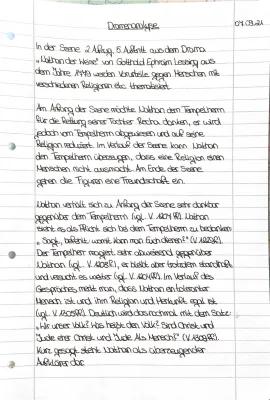 Dramenanalyse
07.09.21
In der Szene 2. Aufzug, 5. Auftritt aus dem Drama
"Nathan der Weise" von Gotthold Ephraim Lessing aus
dem Jahre 1779 werden Vorurteile gegen Menschen mit
verschiedenen Religionen etc. thematisiert.
Am Anfang der Szene möchte Nathan dem Tempelherrn
für die Rettung seiner Tochter Recha danken, er wird
jedoch vom Tempelherrn abgewiesen und auf seine
Religion reduziert. Im Verlauf der Szene kann Nathan
den Tempelherrn überzeugen, dass eine Religion einen
Menschen nicht ausmacht. Am Ende der Szene
gehen die Figuren eine Freundschaft ein.
Nathan verhält sich zu Anfang der Szene sehr dankbar
gegenüber dem Tempelherrn (vgl. V. Nathan
sieht es als Pflicht sich bei dem Tempelherrn zu bedanken
"Sagt, befehlt: womit kann man Euch dienen?" (V.
Der Tempelherr reagiert sehr abweisend gegenüber
Nathan (vgl. V. er bleibt aber trotzdem standhaft
und versucht es weiter (vgl. V. Im Verlauf des
Gespräches merkt man, dass Nathan ein toleranter
Mensch ist und ihm Religion und Herkunft egal ist
(vgl. V. Deutlich wird das nochmal mit dem Satz:
"Wir unser Volk? Was heißt denn Volk? Sind Christ und
Jude eher Christ und Jude Als Mensch?" (V.
Kurz gesagt stellt Nathan als überzeugender
Aufklärer dar.